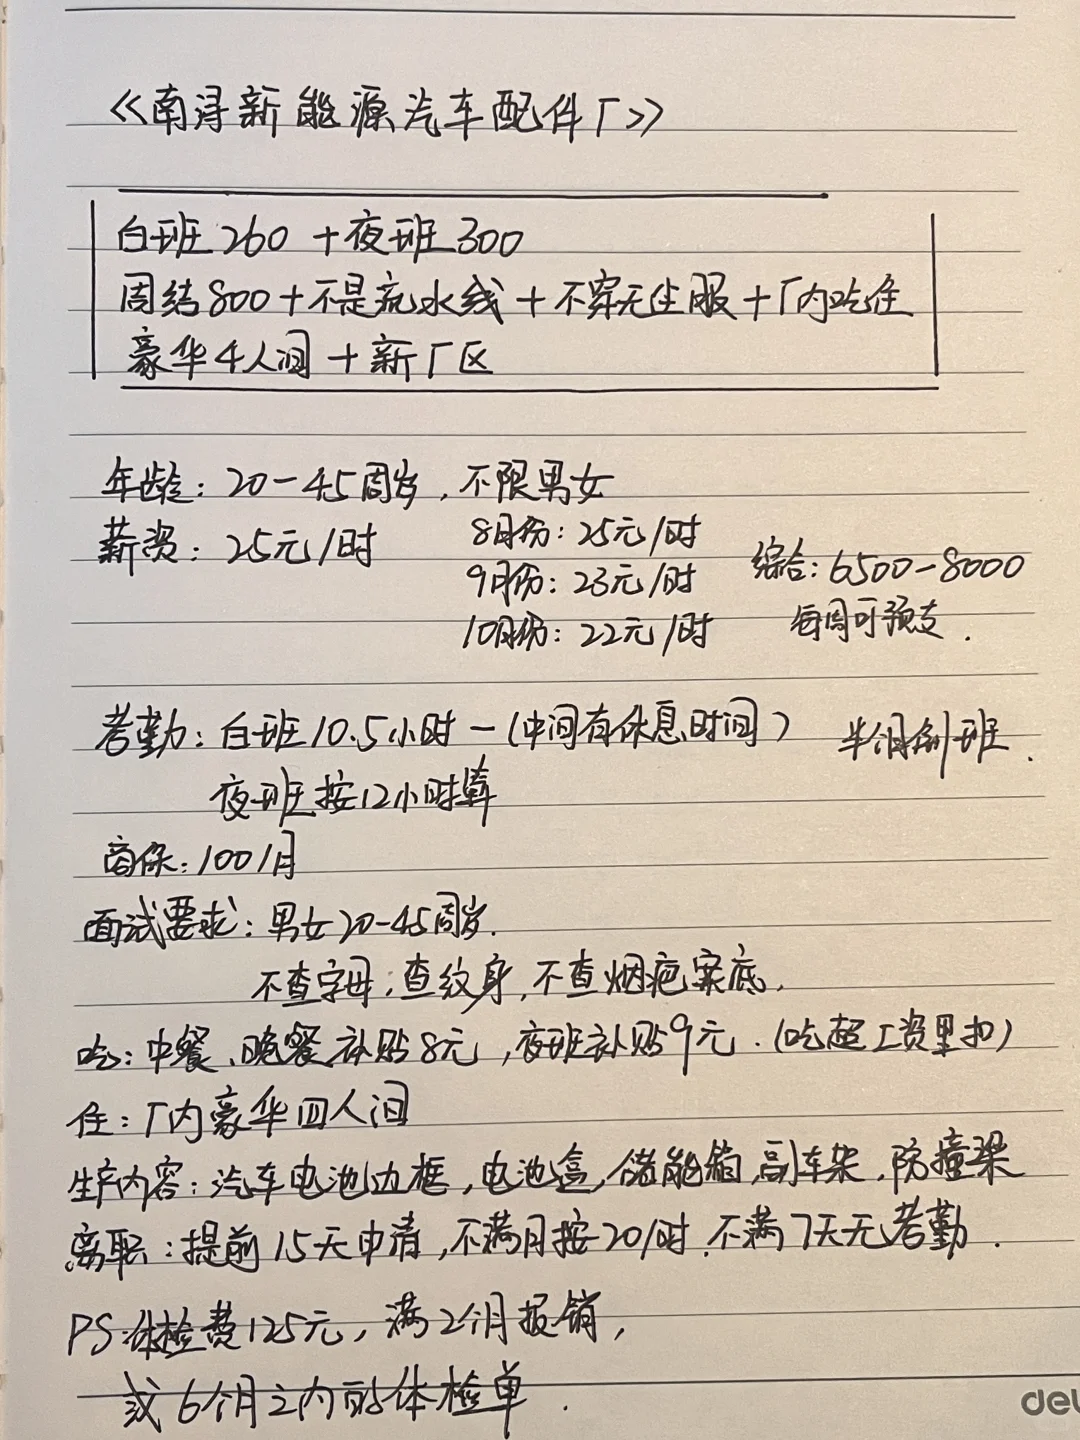 《南浔新能源汽车配件厂》
白班260+夜班300
周结800+不是流水线+不穿无尘服+厂内吃住
豪华4人间+新厂区
年龄：20-45周岁，不限男女
薪资：25元/时
8月份：25元/时
9月份：23元/时
10月份：22元/时
综合：6500-8000
每周可预支.
考勤：白班10.5小时-(中间有休息时间)
半个月倒班.
夜班按12小时算
商保：100/月
面试要求：男女20-45周岁.
不查字母；查纹身，不查烟疤案底.
吃：中餐、晚餐补贴8元，夜班补贴9元.(吃超工资里扣)
住：厂内豪华四人间
生产内容：汽车电池边框，电池盒，储能箱，副车架，防撞梁
离职：提前15天申请，不满月按20/时.不满7天无考勤.
PS：体检费125元，满2个月报销，
或6个月之内的体检单.